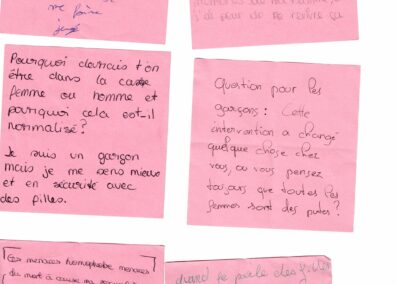 me faire
jugé
j'ai peur de ne revivre ça
Pourquoi devrais t'on
être dans la case
femme ou homme et
pourquoi cela est-il
normalisé?
Je suis un garçon
mais je me sens mieux
et en sécurité avec
des filles.
Question pour les
garçons : Cette
intervention a changé
quelque chose chez
vous, ou vous pensez
toujours que toutes les
femmes sont des putes?
Les menaces homophobe menaces
de mort à cause ma
quand je parle des